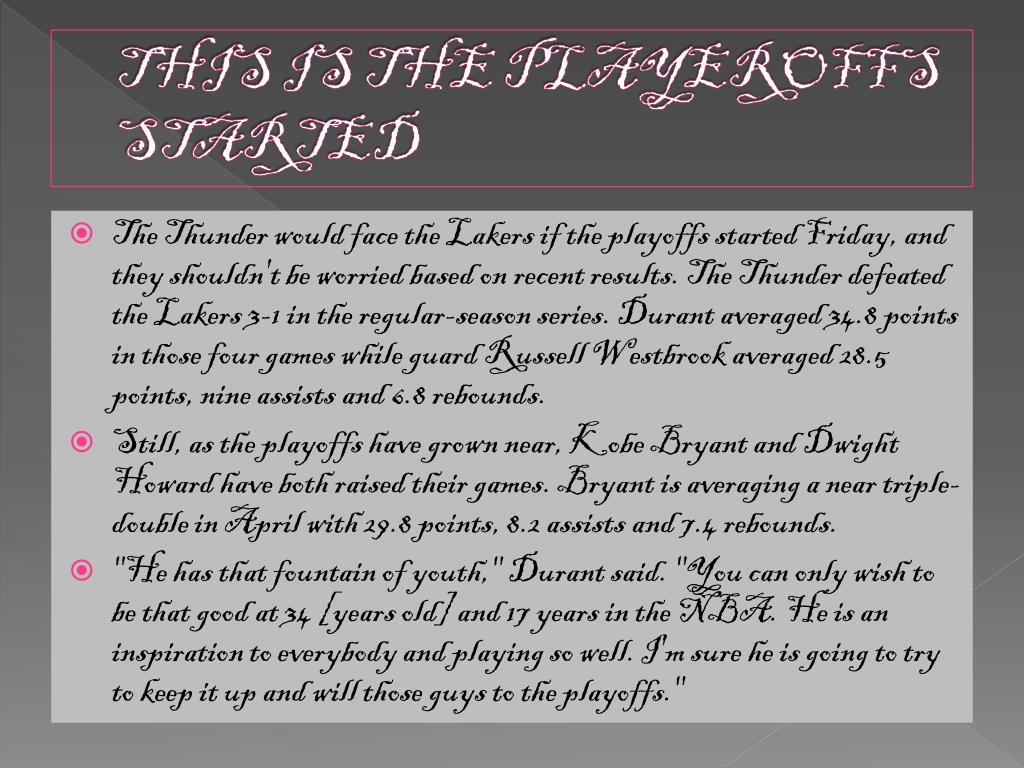 THIS IS THE PLAYEROFFS
STARTED
The Thunder would face the Lakers if the playoffs started Friday, and
they shouldn't be worried based on recent results. The Thunder defeated
the Lakers 3-1 in the regular-season series. Durant averaged 34.8 points
in those four games while guard Russell Westbrook averaged 28.5
points, nine assists and 6.8 rebounds.
Still, as the playoffs have grown near, Kobe Bryant and Dwight
Howard have both raised their games. Bryant is averaging a near triple-
double in April with 29.8 points, 8.2 assists and 7.4 rebounds.
"He has that fountain of youth," Durant said. "You can only wish to
be that good at 34 [years old] and 17 years in the NBA. He is an
inspiration to everybody and playing so well. I'm sure he is going to try
to keep it up and will those guys to the playoffs."